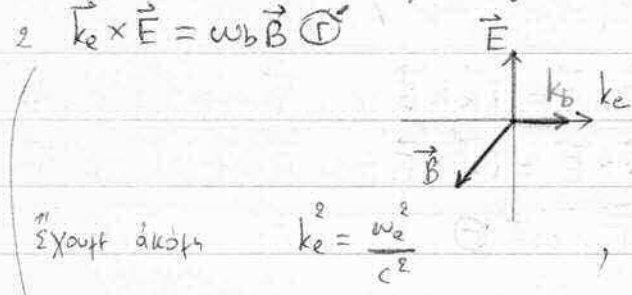 2 k⃗e × E⃗ = ωb B⃗ Ⓕ
E⃗
kb ke
B⃗
Ἔχουμε ἀκόμη ke² = ωe²/c² ,